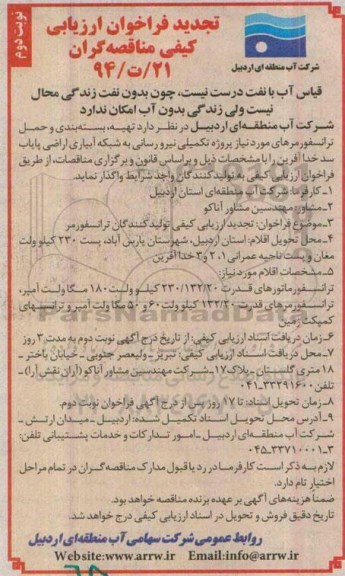 نوبت دوم
تجدید فراخوان ارزیابی
کیفی مناقصه‌گران
۹۴/ت/۲۱
شرکت آب منطقه ای اردبیل
قیاس آب با نفت درست نیست، چون بدون نفت زندگی محال
نیست ولی زندگی بدون آب امکان ندارد
شرکت آب منطقه‌ای اردبیل در نظر دارد تهیه، بسته‌بندی و حمل
ترانسفورمرهای مورد نیاز پروژه تکمیلی نیرو رسانی به شبکه آبیاری اراضی پایاب
سد خدا آفرین را با مشخصات ذیل و براساس قانون و برگزاری مناقصات، از طریق
فراخوان ارزیابی کیفی به تولیدکنندگان واجد شرایط واگذار نماید.
۱_کارفرما: شرکت آب منطقه‌ای استان اردبیل
۲_مشاور: مهندسین مشاور آناکو
۳_موضوع فراخوان: تجدید ارزیابی کیفی تولیدکنندگان ترانسفورمر
۴_محل تحویل اقلام: استان اردبیل، شهرستان پارس آباد، پست ۲۳۰ کیلو ولت
مغان و پست ناحیه عمرانی ۱، ۲ و ۳ خدا آفرین
۵_مشخصات اقلام مورد نیاز:
ترانسفورماتورهای قدرت ۲۳۰/۱۳۲/۲۰ کیلو ولت ۱۸۰ مگا ولت آمپر،
ترانسفورمرهای قدرت ۱۳۲/۲۰ کیلو ولت ۶۰ و ۵۰ مگا ولت آمپر و ترانسهای
کمپکت زمین
۶_زمان دریافت اسناد ارزیابی کیفی: از تاریخ درج آگهی نوبت دوم به مدت ۳ روز
۷_محل دریافت اسناد ارزیابی کیفی: تبریز _ ولیعصر جنوبی _ خیابان باختر _
۱۸ متری گلستان _ پلاک ۱۷ _ شرکت مهندسین مشاور آناکو (آران نقش آرا) _
تلفن ۳۳۲۹۱۶۰۰_۰۴۱
۸_زمان تحویل اسناد: تا ۱۷ روز پس از درج آگهی فراخوان نوبت دوم.
۹_آدرس محل تحویل اسناد تکمیل شده: اردبیل _ میدان ارتش _
شرکت آب منطقه‌ای اردبیل _ امور تدارکات و خدمات پشتیبانی تلفن:
۳_۳۳۷۱۰۰۰۱_۰۴۵
لازم به ذکر است کارفرما در رد یا قبول مدارک مناقصه‌گران در تمام مراحل
اختیار تام دارد.
ضمناً هزینه‌های آگهی بر عهده برنده مناقصه خواهد بود.
تاریخ دقیق فروش و تحویل در اسناد ارزیابی کیفی درج خواهد شد.
روابط عمومی شرکت سهامی آب منطقه‌ای اردبیل
Website:www.arrw.ir Email:info@arrw.ir